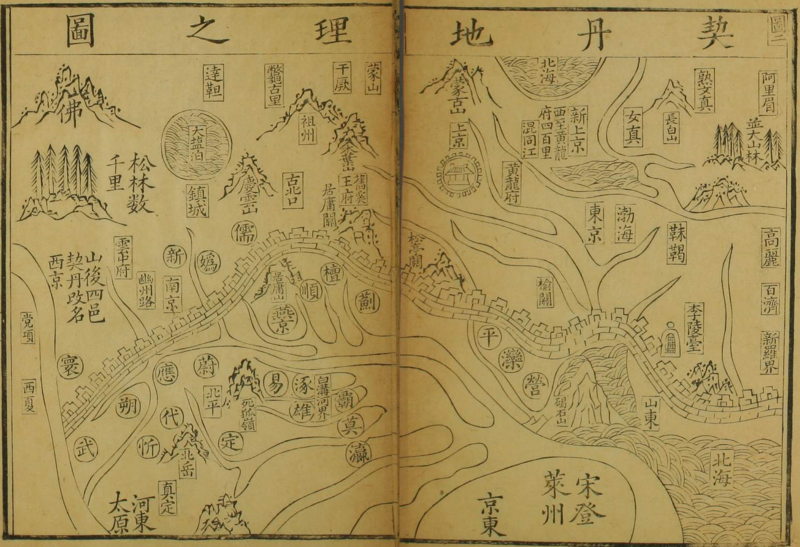 契丹地理之圖
圖二
阿里眉
熟女真
長白山
並大山林
女真
北海
新上京
西至黃龍
府四百里
混同江
蒙古山
上京
黃龍府
東京
渤海
靺鞨
高麗
百濟
新羅界
李陵臺
榆關
松亭關
平
灤
營
碣石山
山東
北海
宋登
萊州
京東
蒙山
于厥
祖州
達靼
大鹽泊
鎮城
慶雲山
古北口
王府
居庸關
佛
松林數
千里
儒
媯
新
南京
幽州路
雲中府
山後四邑
契丹改名
西京
党項
西夏
居庸山
燕京
順
檀
薊
寰
朔
武
應
代
忻
蔚
北平
易
涿
雄
霸
莫
瀛
定
北岳
真定
河東
太原